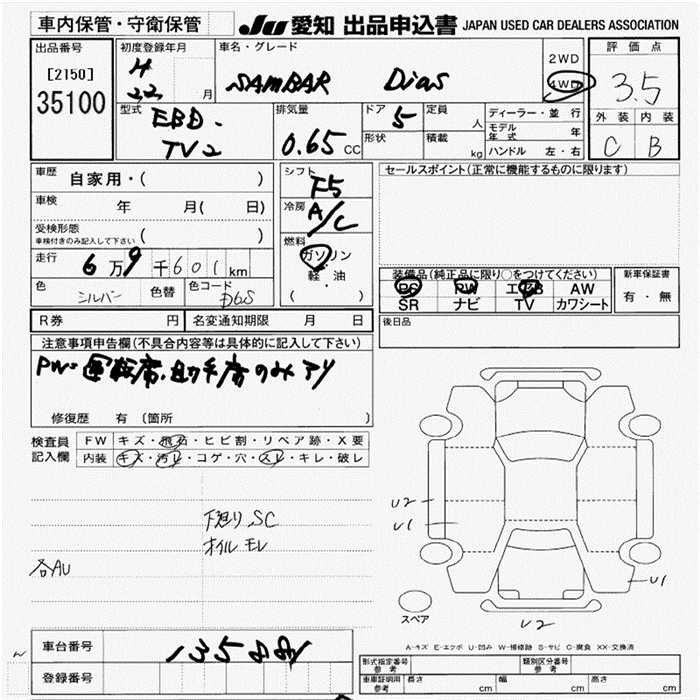 車内保管・守衛保管
JU 愛知 出品申込書 JAPAN USED CAR DEALERS ASSOCIATION
出品番号
[2150]
35100
初度登録年月
H
22 月
車名・グレード
SAMBAR Dias
2WD
4WD
評価点
3.5
外装 内装
C B
型式
EBD-
TV2
排気量
0.65 CC
ドア
5
形状
定員
人
積載
kg
ディーラー・並行
モデル年式 年
ハンドル 左・右
車歴
自家用・( )
車検
年 月( 日)
受検形態
車検付きのみ記入して下さい ( )
走行
6万9千601km
色
シルバー
色替
色コード
D6S
シフト
F5
冷房
A/C
燃料
ガソリン
軽・油
( )
セールスポイント(正常に機能するものに限ります)
装備品(純正品に限り○をつけてください)
PS PW エアB AW
SR ナビ TV カワシート
新車保証書
有・無
後日品
R券 円
名変通知期限 月 日
注意事項申告欄(不具合内容等は具体的に記入して下さい)
PW・運転席、助手席のみアリ
修復歴 有 (箇所 )
検査員
記入欄
FW キズ・飛石・ヒビ割・リペア跡・X要
内装 キズ・汚レ・コゲ・穴・スレ・キレ・破レ
下廻り SC
オイルモレ
各AU
U2
U1
U1
U2
スペア
A-キズ E-エクボ U-凹み W-補修跡 S-サビ C-腐食 XX-交換済
車台番号
135881
登録番号
型式指定番号
参考
類別区分番号
参考
車庫証明用
参考
長さ cm
幅 cm
高さ cm